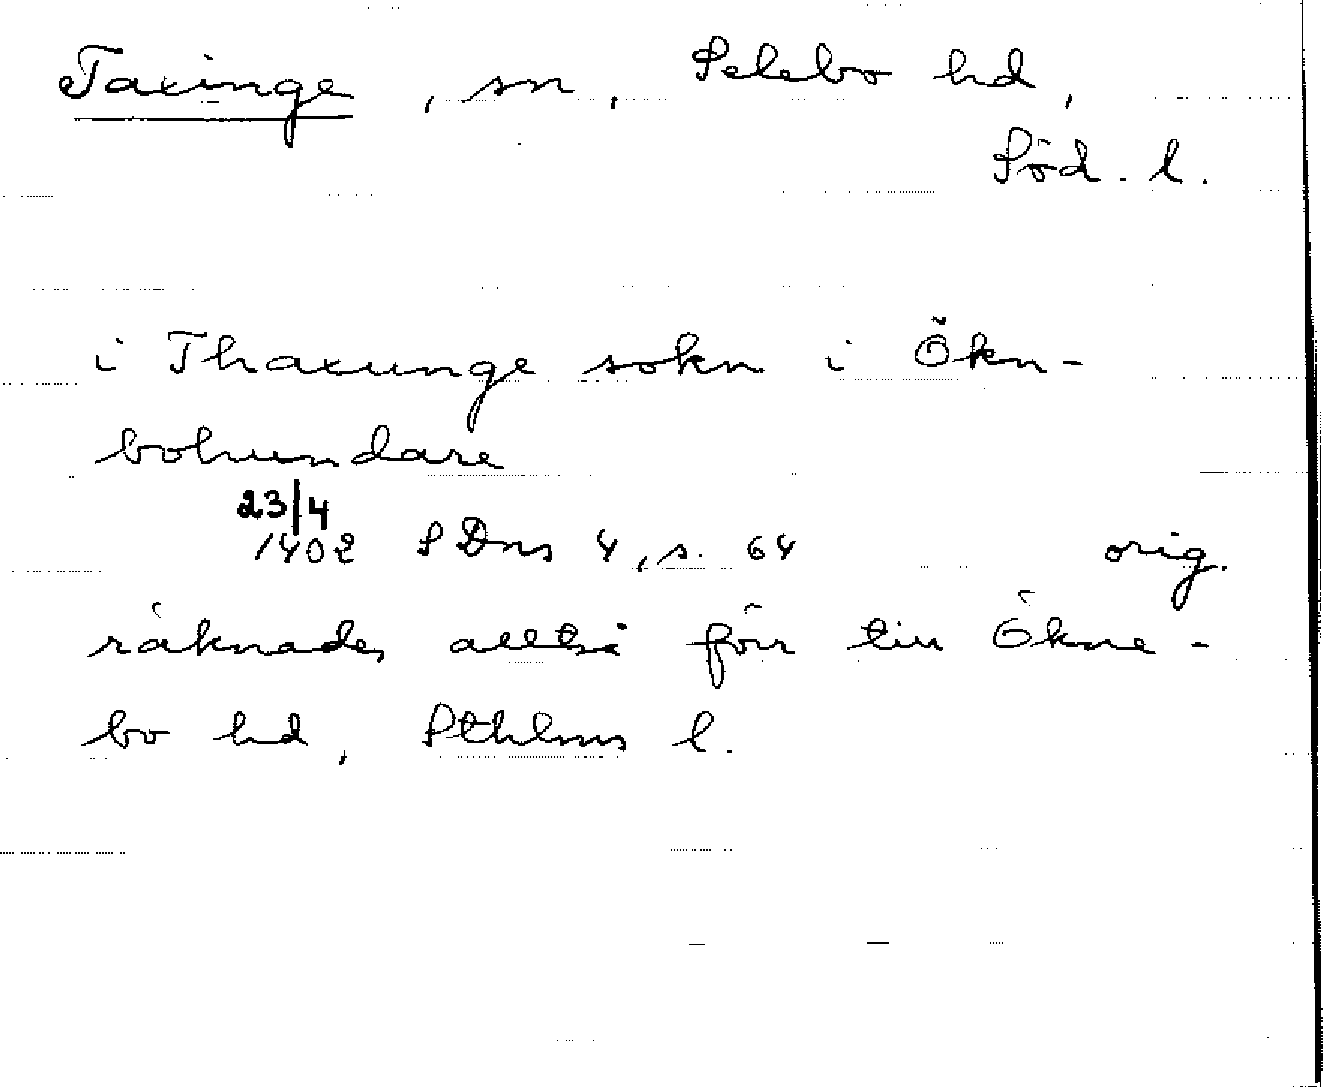 Taxinge, sn, Selebo hd,
Söd. l.
i Thaxunge sokn i Økn-
bohundare
23/4
1402 SDns 4, s. 64 orig.
räknades alltså förr till Økne-
bo hd, Sthlms l.